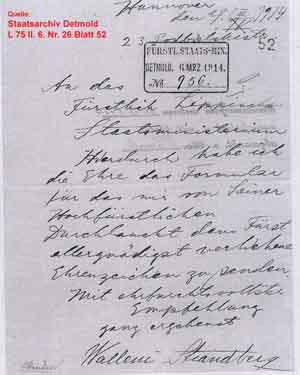 Quelle:
Staatsarchiv Detmold
L 75 II. 6. Nr. 26 Blatt 52
Hannover
den 4. III 1914
23
52
FÜRSTL. STAATS-MIN.
DETMOLD 6. MRZ 1914.
No 956.
An das
Fürstlich Lippische
Staatsministerium
Hierdurch habe ich
die Ehre das Formular
für das mir von Seiner
Hochfürstlichen
Durchlaucht dem Fürst
allergnädigst verliehene
Ehrenzeichen zu senden.
Mit ehrfurchtsvollster
Empfehlung
ganz ergebenst
Walleni Strandberg